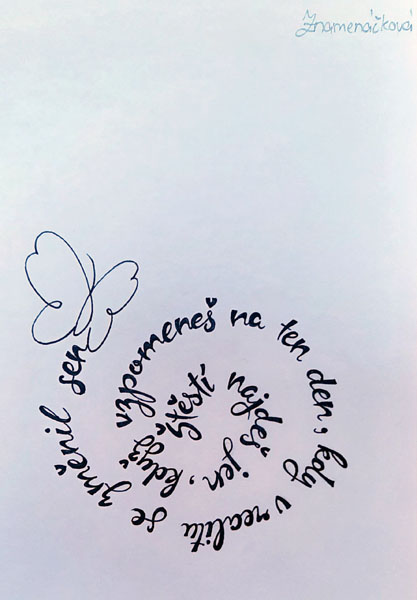 Znamenáčková
Štěstí najdeš jen, když vzpomeneš na ten den, kdy v realitu se změnil sen